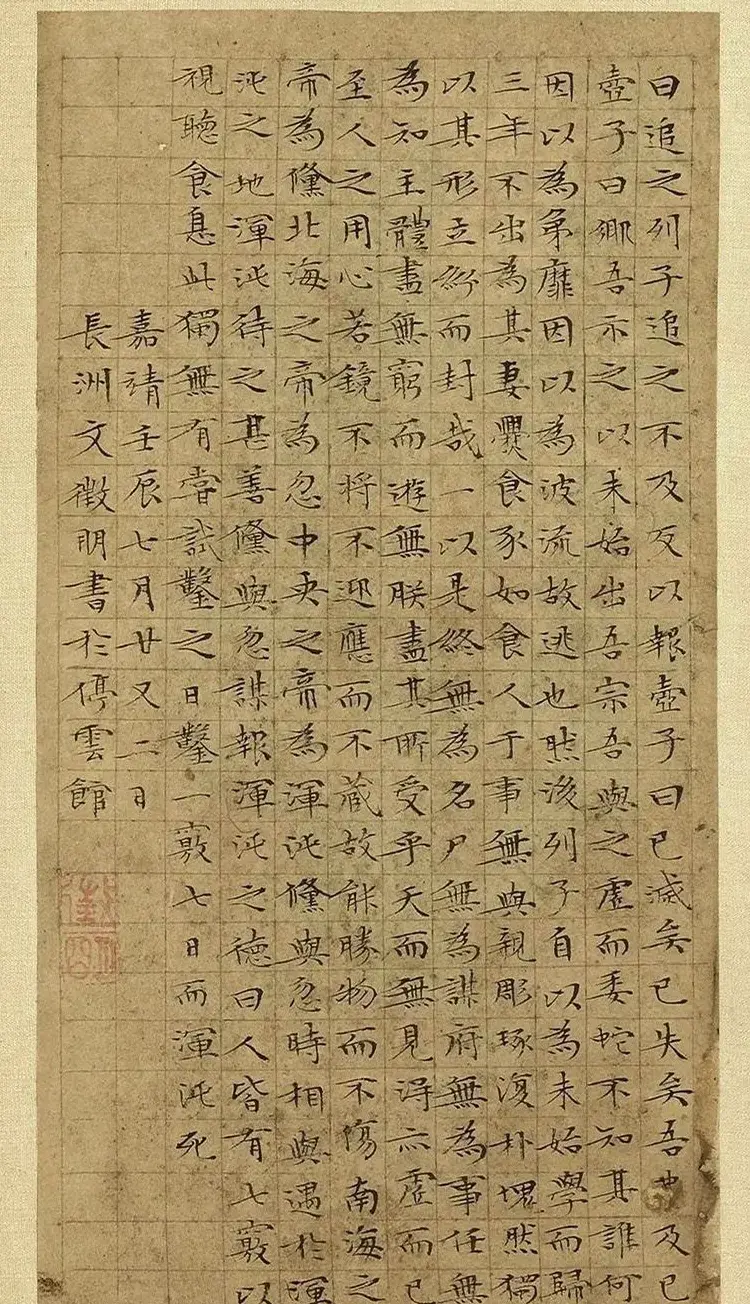 曰追之列子追之不及反以報壺子曰已滅矣已失矣吾弗及已
壺子曰鄉吾示之以未始出吾宗吾與之虛而委蛇不知其誰何
因以為弟靡因以為波流故逃也然後列子自以為未始學而歸
三年不出為其妻爨食豕如食人于事無與親彫琢復朴塊然獨
以其形立紛而封哉一以是終無為名尸無為謀府無為事任無
為知主體盡無窮而遊無朕盡其所受乎天而無見得亦虛而已
至人之用心若鏡不將不迎應而不藏故能勝物而不傷南海之
帝為儵北海之帝為忽中央之帝為渾沌儵與忽時相與遇於渾
沌之地渾沌待之甚善儵與忽謀報渾沌之德曰人皆有七竅以
視聽食息此獨無有嘗試鑿之日鑿一竅七日而渾沌死
嘉靖壬辰七月廿又二日
長洲文徵明書於停雲館